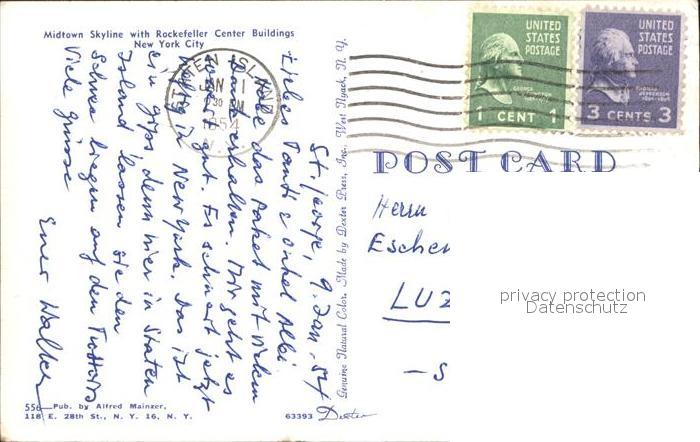 Midtown Skyline with Rockefeller Center Buildings
New York City
STATEN ISLAND
JAN 11
30 PM
1954
N.Y.
UNITED
STATES
POSTAGE
1 CENT 1
UNITED
STATES
POSTAGE
3 CENTS 3
POST CARD
St. George, 9. Jan. 54
Liebes Tanti & Onkel Albi.
Habe das Paket mit vielem
Dank erhalten. Mir geht es
sehr gut. Es schneit jetzt
heftig in New York. Das ist
ein Gips, denn hier in Staten
Island lassen sie den
Schnee liegen auf den Trottoirs
Viele Grüsse
Euer Walter
Genuine Natural Color. Made by Dexter Press, Inc., West Nyack, N. Y.
Herrn
Eschen
LUZ
- S
privacy protection
Datenschutz
556—Pub. by Alfred Mainzer,
118 E. 28th St., N. Y. 16, N. Y.
63393 Dexter